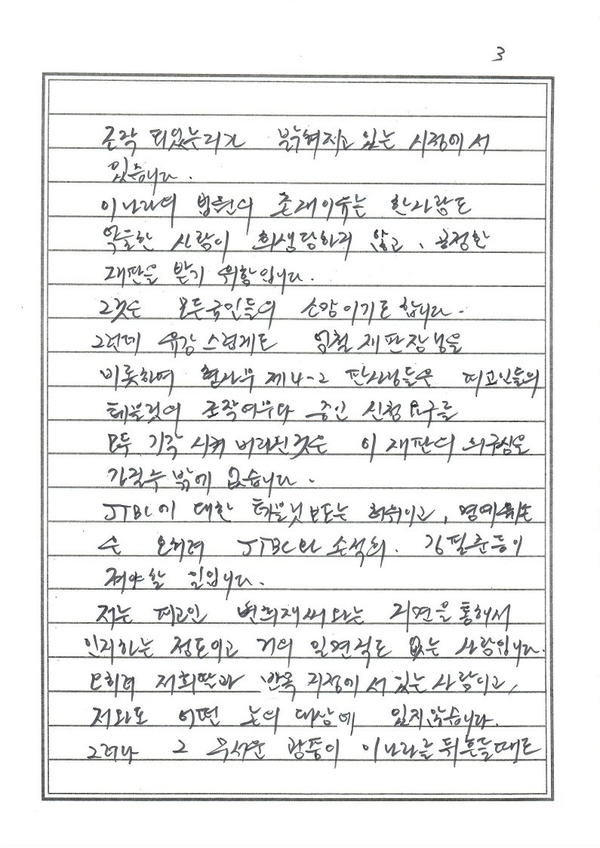 3
조작 되었는지가 밝혀지고 있는 시점에서
있습니다.
이나라의 법원의 존재이유는 한사람도
억울한 사람이 희생당하지 않고, 공정한
재판을 받기 위함입니다.
그것은 모든국민들의 소망이기도 합니다.
그런데 유감 스럽게도 엄철 재판장님을
비롯하여 형사부 제4-2 판사님들은 피고인들의
테블릿의 조작여부와 증인 신청 요구를
모두 기각 시켜 버리신것은 이 재판의 의구심을
가질수 밖에 없습니다.
JTBC에 대한 테블릿 보도는 허위이고, 명예훼손
은 오히려 JTBC와 손석희. 김필준등이
져야할 일입니다.
저는 피고인 변희재씨와는 지면을 통해서
인지하는 정도이고 거의 일면식도 없는 사람입니다.
오히려 저희딸과 반목 지점에 서 있는 사람이고,
저와도 어떤 논의 대상에 있지않습니다.
그러나 그 무서운 광풍이 이나라를 뒤흔들때도